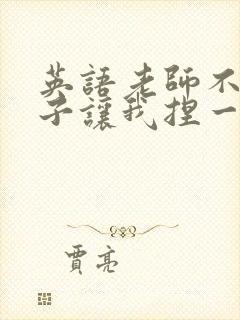 英語老師不
子讓我捏一
賈亮